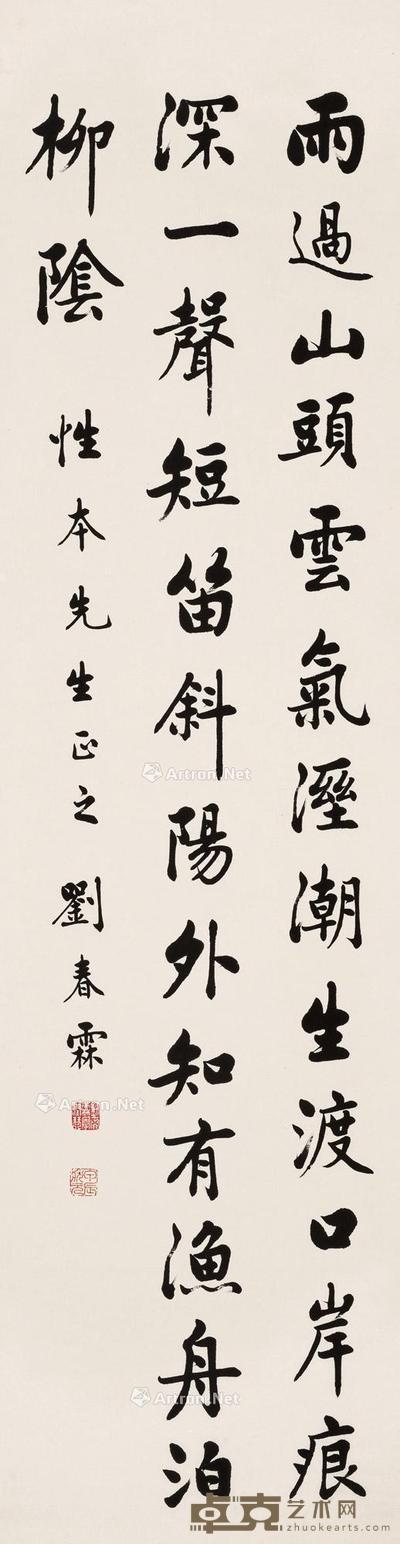 雨過山頭雲氣溼潮生渡口岸痕
深一聲短笛斜陽外知有漁舟泊
柳陰
性本先生正之 劉春霖
Artron.Net
Artron.Net
Artron.Net
卓克艺术网
zhuokearts.com